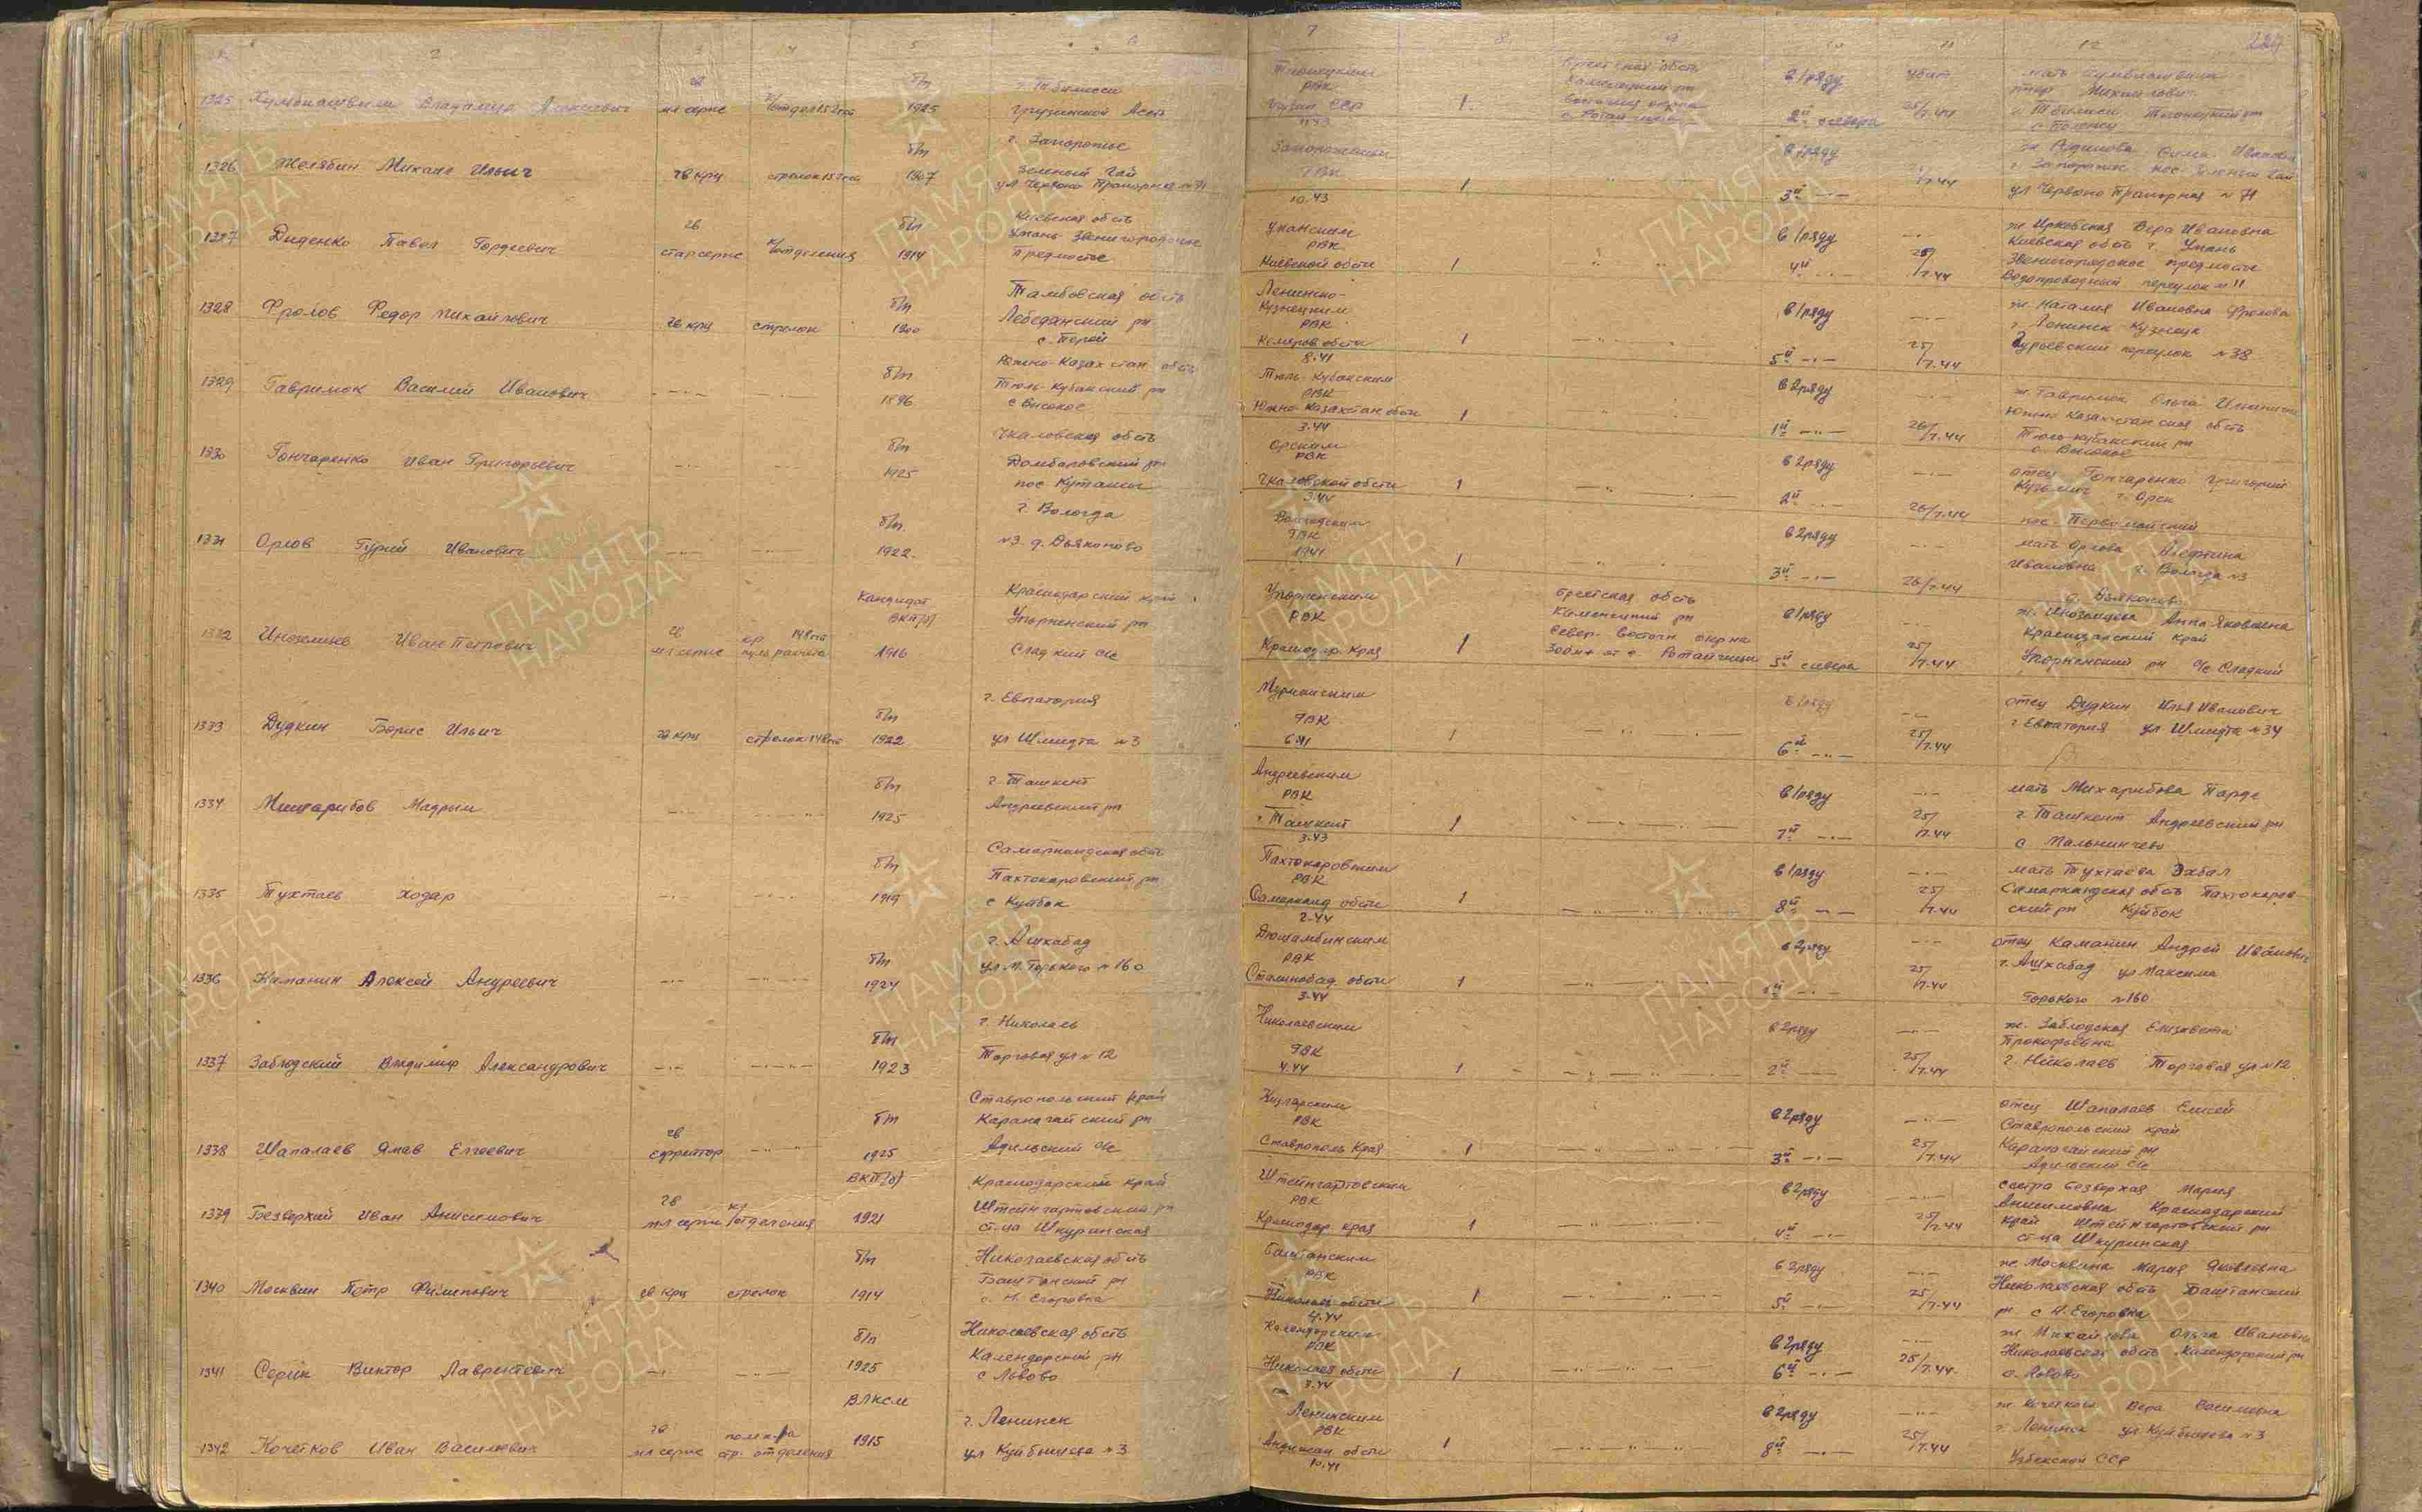 1 2 3 4 5 6 7 8 9 10 11 12
1325 Владимир гв мл серж б/п 1925 г. Тбилиси Грузинской РВК Грузин ССР 1 Брестская обсть Каменецкий рн в 1 ряду 2й с севера убит 25/7.44 мать Михайлович г. Тбилиси
1326 Желябин Михаил Ильич гв крц стрелок 152 б/п 1907 г. Запорожье Зеленый Гай ул Червоно Прапорная № 71 Запорожским РВК 10.43 1 в 1 ряду 3й 25/7.44 ж Сима Ивановна г. Запорожье пос Зеленый Гай ул Червоно Прапорная № 71
1327 Диденко Павел Гордеевич гв стар серж к/отделения б/п 1914 Киевская обсть Умань Звенигородское Предместье Уманским РВК Киевской обсти 1 в 1 ряду 4й 25/7.44 ж Ирковская Вера Ивановна Киевская обсть г. Умань Звенигородское предместье Водопроводный переулок № 11
1328 Фролов Федор Михайлович гв крц стрелок б/п 1900 Тамбовская обсть Лебедянский рн с. Перой Ленинско-Кузнецким РВК Кемеров обсти 8.41 1 в 1 ряду 5й 25/7.44 ж. Наталия Ивановна Фролова г. Ленинск Кузнецк Гурьевский переулок № 38
1329 Гаврилюк Василий Иванович б/п 1896 Южно-Казахстан обсть Тюль-Кубакский рн с Высокое Тюль-Кубакским РВК Южно-Казахстан обсти 3.44 1 в 2 ряду 1й 26/7.44 ж. Гаврилюк Ольга Южно Казахстанская обсть Тюль-Кубакский рн с. Высокое
1330 Гончаренко Иван Григорьевич б/п 1925 Чкаловская обсть Домбаровский рн пос Орским РВК Чкаловской обсти 3.44 1 в 2 ряду 2й 26/7.44 отец Гончаренко Григорий Кузьмич г. Орск пос. Первомайский
1331 Орлов Гурий Иванович б/п 1922 г. Вологда №3 д. Дьяконово Вологодским РВК 1941 1 в 2 ряду 3й 26/7.44 мать Орлова Алефтина Ивановна г. Вологда №3 д. Дьяконово
1332 Иноземцев Иван Петрович гв мл серж кр 148 пул расчета Кандидат ВКП(б) 1916 Краснодарский край Упорненский рн Сладкий с/с Упорненским РВК Краснодар. Края 1 Брестская обсть Каменецкий рн Север-восточн окр на 300м от с. Ротайчицы в 1 ряду 5й с севера 25/7.44 ж. Иноземцева Анна Яковлевна Краснодарский Край Упорненский рн с/с Сладкий
1333 Дудкин Борис Ильич гв крц стрелок 148 б/п 1922 г. Евпатория ул Шмидта № 3 РВК 6.41 1 в 1 ряду 6й 25/7.44 отец Дудкин Илья Иванович г. Евпатория ул Шмидта № 34
1334 Мадрым б/п 1925 г. Ташкент Андреевский рн Андреевским РВК г. Ташкент 3.43 1 в 1 ряду 7й 25/7.44 мать Михарибова Парде г. Ташкент Андреевский рн с Мальничево
1335 Тухтаев Ходар б/п 1919 Самаркандская обсть Пахтокаровский рн с Куйбок Пахтокаровским РВК Самарканд обсти 2.44 1 в 1 ряду 8й 25/7.44 мать Тухтаева Эхбал Самаркандская обсть Пахтокаровский рн Куйбок
1336 Каманин Алексей Андреевич б/п 1924 г. Ашхабад ул М. Горького № 160 Дюшамбинским РВК Сталинобад. обсти 3.44 1 в 2 ряду 1й 25/7.44 отец Каманин Андрей Иванович г. Ашхабад ул Максима Горького № 160
1337 Заблодский Владимир Александрович б/п 1923 г. Николаев Торговая ул № 12 Николаевским РВК 4.44 1 в 2 ряду 2й 25/7.44 ж. Заблодская Елизавета Прокофьевна г. Николаев Торговая ул № 12
1338 Шапалаев Ямав Елгеевич гв ефрейтор б/п 1925 Ставропольский край Караногайский рн Адильский с/с Кизлярским РВК Ставрополь Края 1 в 2 ряду 3й 25/7.44 отец Шапалаев Елисей Ставропольский край Караногайский рн Адильский с/с
1339 Безверхий Иван Анисимович гв мл серж к/отделения ВКП(б) 1921 Краснодарский край Штейнгартовский рн ст-ца Шкуринская Штейнгартовским РВК Краснодар. края 1 в 2 ряду 4й 25/7.44 сестра Безверхая Мария Анисимовна Краснодарский край Штейнгартовский рн ст-ца Шкуринская
1340 Москвин Петр Филипович гв крц стрелок б/п 1914 Николаевская обсть Баштанский рн с. Н. Егоровка Баштанским РВК Николаев обсти 4.44 1 в 2 ряду 5й 25/7.44 ж. Москвина Мария Яковлевна Николаевская обсть Баштанский рн с Н. Егоровка
1341 Серик Виктор Лаврентевич б/п 1925 Николаевская обсть Календорский рн с Львово Календорским РВК Николаев обсти 3.44 1 в 2 ряду 6й 25/7.44 ж Михайлова Ольга Ивановна Николаевская обсть Календорский рн с. Львово
1342 Кочетков Иван Василевич гв мл серж пом к-ра стр. отделения ВЛКСМ 1915 г. Ленинск ул Куйбышева № 3 Ленинским РВК Андижан обсти 10.41 1 в 2 ряду 8й 25/7.44 ж Кочеткова Вера Василевна г. Ленинск ул Куйбышева № 3 Узбекской ССР
ПАМЯТЬ НАРОДА